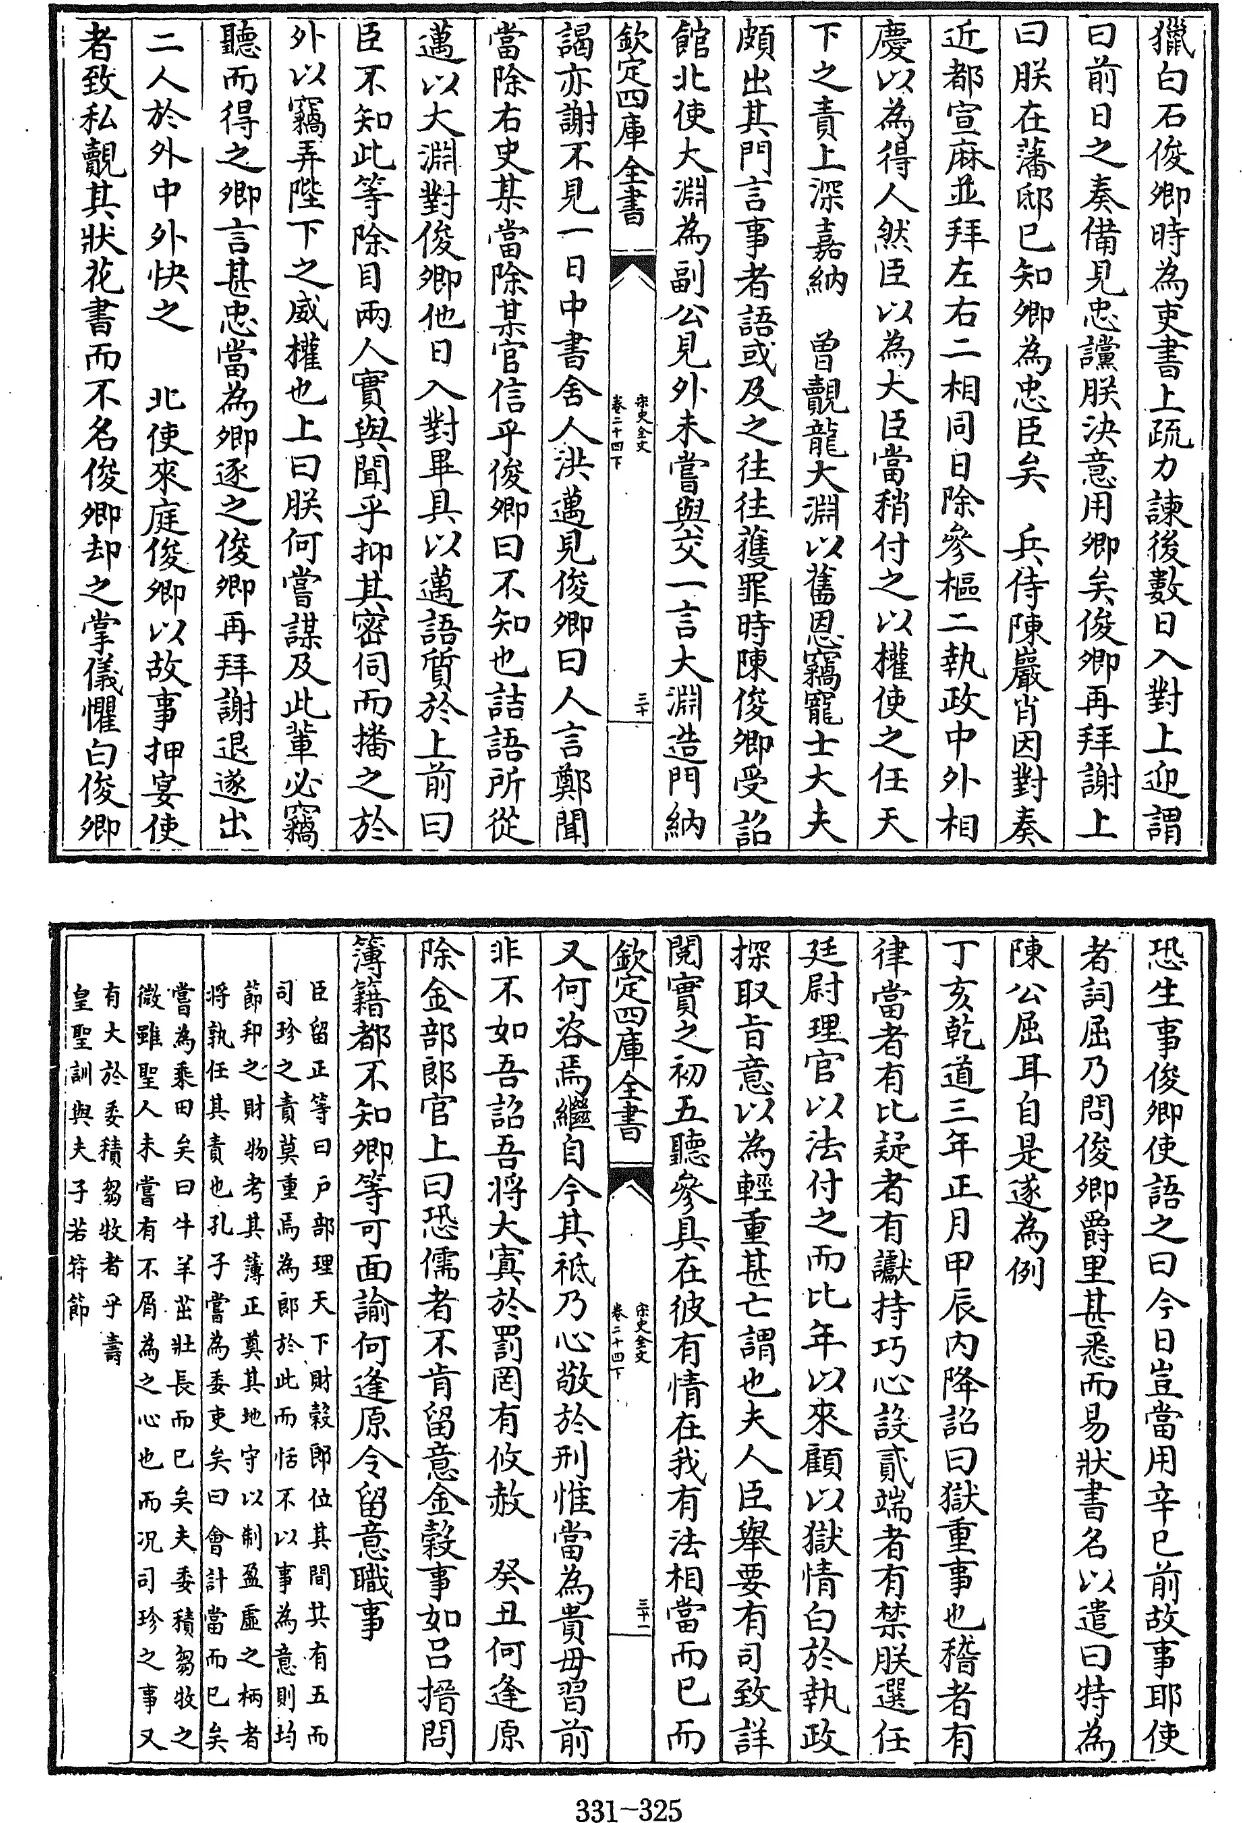 獵白石俊卿時為吏書上疏力諫後數日入對上迎謂
曰前日之奏備見忠讜朕決意用卿矣俊卿再拜謝上
曰朕在藩邸已知卿為忠臣矣　兵侍陳巖肖因對奏
近都宣麻並拜左右二相同日除參樞二執政中外相
慶以為得人然臣以為大臣當稍付之以權使之任天
下之責上深嘉納　曾覿龍大淵以舊恩竊寵士大夫
頗出其門言事者語或及之往往獲罪時陳俊卿受詔
館北使大淵為副公見外未嘗與交一言大淵造門納
欽定四庫全書
宋史全文
卷二十四下
三十
謁亦謝不見一日中書舍人洪邁見俊卿曰人言鄭聞
當除右史某當除某官信乎俊卿曰不知也詰語所從
邁以大淵對俊卿他日入對畢具以邁語質於上前曰
臣不知此等除目兩人實與聞乎抑其密伺而播之於
外以竊弄陛下之威權也上曰朕何嘗謀及此輩必竊
聽而得之卿言甚忠當為卿逐之俊卿再拜謝退遂出
二人於外中外快之　北使來庭俊卿以故事押宴使
者致私覿其狀花書而不名俊卿却之掌儀懼白俊卿
恐生事俊卿使語之曰今日豈當用辛巳前故事耶使
者詞屈乃問俊卿爵里甚悉而易狀書名以遣曰特為
陳公屈耳自是遂為例
丁亥乾道三年正月甲辰內降詔曰獄重事也稽者有
律當者有比疑者有讞持巧心設貳端者有禁朕選任
廷尉理官以法付之而比年以來顧以獄情白於執政
探取旨意以為輕重甚亡謂也夫人臣舉要有司致詳
閱實之初五聽參具在彼有情在我有法相當而已而
欽定四庫全書
宋史全文
卷二十四下
三十一
又何咨焉繼自今其祗乃心敬於刑惟當為貴毋習前
非不如吾詔吾將大寘於罰罔有攸赦　癸丑何逢原
除金部郎官上曰恐儒者不肯留意金穀事如呂搢問
簿籍都不知卿等可面諭何逢原令留意職事
臣留正等曰戶部理天下財穀郎位其間其有五而
司珍之責莫重焉為郎於此而恬不以事為意則均
節邦之財物考其簿正奠其地守以制盈虛之柄者
將孰任其責也孔子嘗為委吏矣曰會計當而已矣
嘗為乘田矣曰牛羊茁壯長而已矣夫委積芻牧之
微雖聖人未嘗有不屑為之心也而况司珍之事又
有大於委積芻牧者乎壽
皇聖訓與夫子若符節
331-325